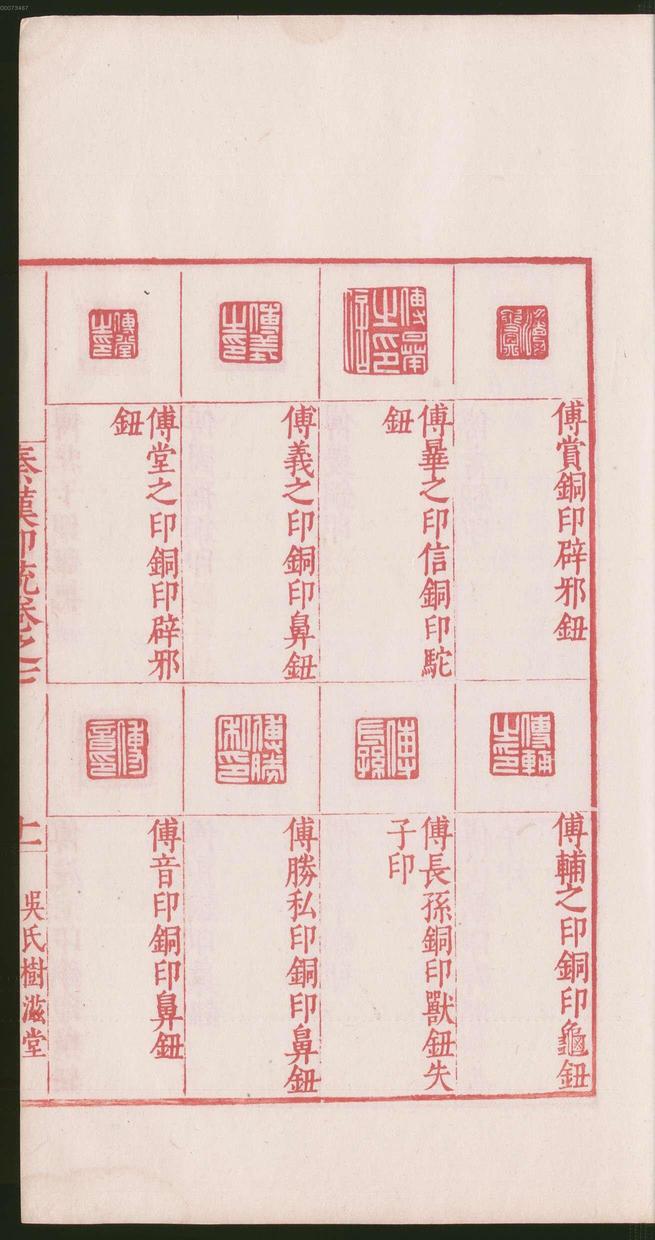 傅賞銅印辟邪鈕
傅𤲞之印信銅印駝
鈕
傅義之印銅印鼻鈕
傅堂之印銅印辟邪
鈕
傅輔之印銅印龜鈕
傅長孫銅印獸鈕失
子印
傅勝私印銅印鼻鈕
傅音印銅印鼻鈕
秦漢印統卷之七
十一
吳氏樹滋堂
00073467